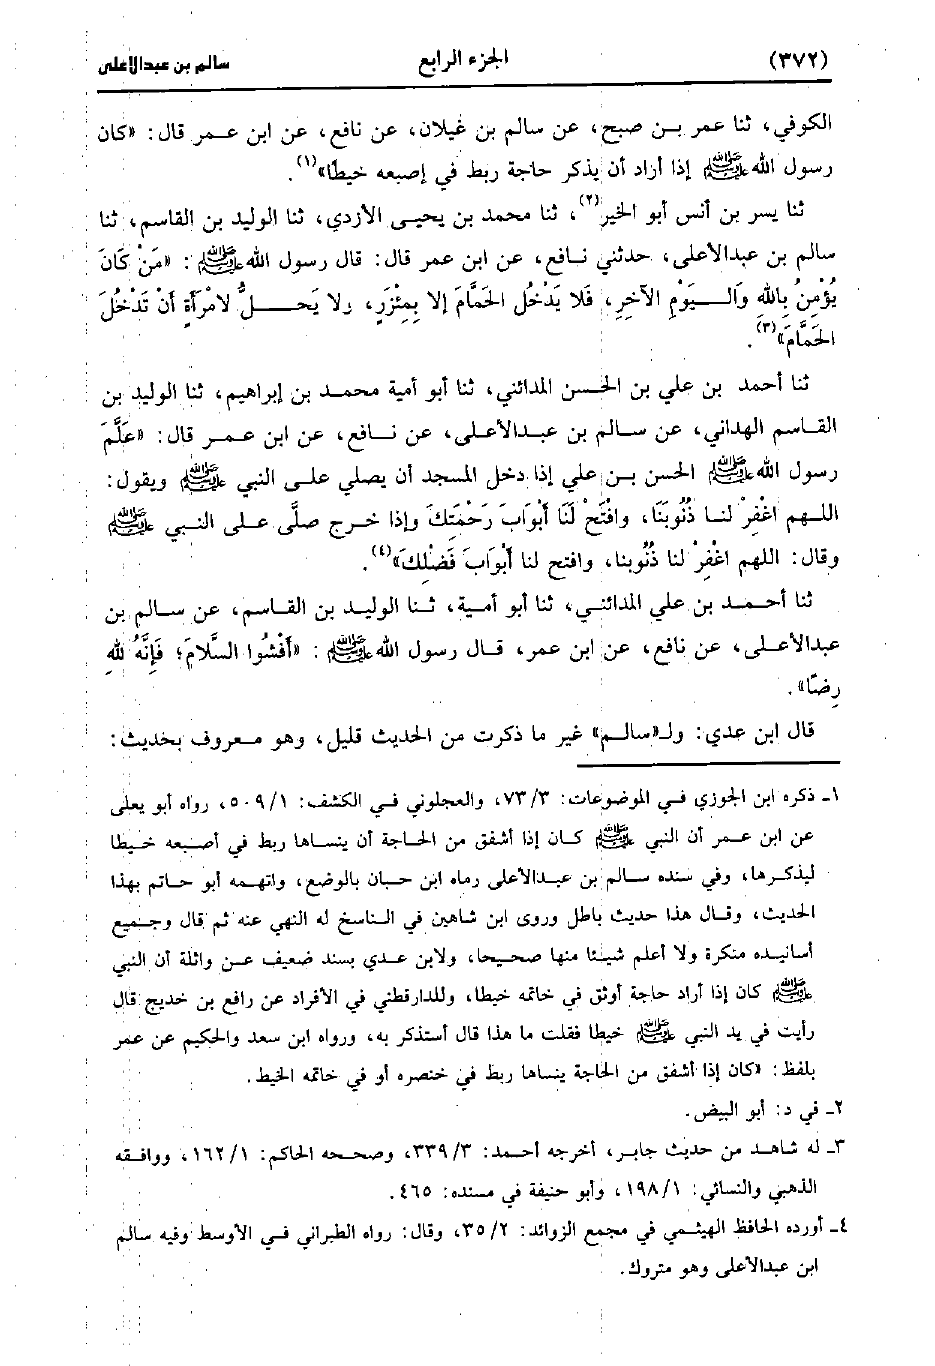 (٣٧٢) الجزء الرابع سالم بن عبدالأعلى
الكوفي، ثنا عمر بن صبح، عن سالم بن غيلان، عن نافع، عن ابن عمر قال: «كان
رسول الله ﷺ إذا أراد أن يذكر حاجة ربط في إصبعه خيطًا»(١).
ثنا يسر بن أنس أبو الخير(٢)، ثنا محمد بن يحيى الأزدي، ثنا الوليد بن القاسم، ثنا
سالم بن عبدالأعلى، حدثني نافع، عن ابن عمر قال: قال رسول الله ﷺ: «مَنْ كَانَ
يُؤْمِنُ بِاللهِ وَالـيَوْمِ الآخِرِ، فَلا يَدْخُلُ الحَمَّامَ إلا بِمِئْزَرٍ، ولا يَحلُّ لامْرَأَةٍ أنْ تَدْخُلَ
الحَمَّامَ»(٣).
ثنا أحمد بن علي بن الحسن المدائني، ثنا أبو أمية محمد بن إبراهيم، ثنا الوليد بن
القاسم الهداني، عن سالم بن عبدالأعلى، عن نافع، عن ابن عمر قال: «عَلَّمَ
رسول الله ﷺ الحسن بن علي إذا دخل المسجد أن يصلي على النبي ﷺ ويقول:
اللهم اغْفِرْ لنا ذُنُوبَنَا، وافْتَح لَنَا أَبْوابَ رَحْمَتِكَ وإذا خرج صلَّى على النبي ﷺ
وقال: اللهم اغْفِرْ لنا ذُنُوبنا، وافتح لنا أَبْوَابَ فَضْلِكَ»(٤).
ثنا أحمد بن علي المدائني، ثنا أبو أمية، ثنا الوليد بن القاسم، عن سالم بن
عبدالأعلى، عن نافع، عن ابن عمر، قال رسول الله ﷺ: «أَفْشُوا السَّلامَ؛ فَإِنَّهُ للهِ
رِضًا».
قال ابن عدي: ولـ«سالم» غير ما ذكرت من الحديث قليل، وهو معروف بحديث:
١ـ ذكره ابن الجوزي في الموضوعات: ٧٣/٣، والعجلوني في الكشف: ٥٠٩/١، رواه أبو يعلى
عن ابن عمر أن النبي ﷺ كان إذا أشفق من الحاجة أن ينساها ربط في أصبعه خيطا
ليذكرها، وفي سنده سالم بن عبدالأعلى رماه ابن حبان بالوضع، واتهمه أبو حاتم بهذا
الحديث، وقال هذا حديث باطل وروى ابن شاهين في الناسخ له النهي عنه ثم قال وجميع
أسانيده منكرة ولا أعلم شيئا منها صحيحا، ولابن عدي بسند ضعيف عن واثلة أن النبي
ﷺ كان إذا أراد حاجة أوثق في خاتمه خيطا، وللدارقطني في الأفراد عن رافع بن خديج قال
رأيت في يد النبي ﷺ خيطا فقلت ما هذا قال أستذكر به، ورواه ابن سعد والحكيم عن عمر
بلفظ: «كان إذا أشفق من الحاجة ينساها ربط في خنصره أو في خاتمه الخيط.
٢ـ في د: أبو البيض.
٣ـ له شاهد من حديث جابر، أخرجه أحمد: ٣٣٩/٣، وصححه الحاكم: ١٦٢/١، ووافقه
الذهبي والنسائي: ١٩٨/١، وأبو حنيفة في مسنده: ٤٦٥.
٤ـ أورده الحافظ الهيثمي في مجمع الزوائد: ٣٥/٢، وقال: رواه الطبراني في الأوسط وفيه سالم
ابن عبدالأعلى وهو متروك.